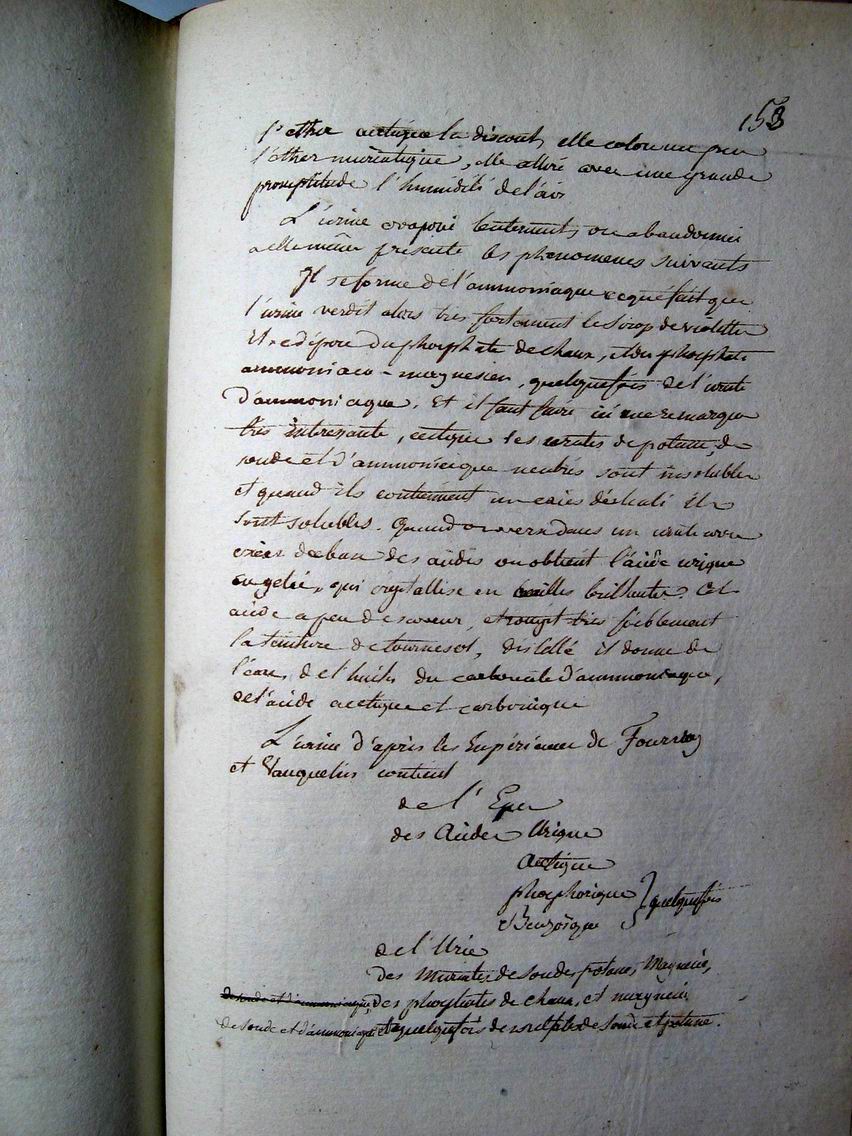 153
l'ether acetique la dissout, elle colore un peu
l'ether muriatique, elle attire avec une grande
promptitude l'humidité de l'air
L'urine evaporé lentement, ou abandonnée
a elle même presente les phenomenes suivants
Il se forme de l'ammoniaque ce qui fait que
l'urine verdit alors tres fortement le sirop de violette
Il se dépose du phosphate de chaux, et du phosphate
ammoniaco-magnesien, quelquefois de l'urate
d'ammoniaque. Et il faut faire ici une remarque
tres interessante, c'est que les urates de potasse, de
soude et d'ammoniaque neutres sont insolubles
et quand ils contiennent un exces d'alcali ils
sont solubles. Quand on verse dans un urate avec
exces de base des acides on obtient l'acide urique
en gelée, qui crystallise en brillantes. Cet
acide a peu de saveur, et rougit tres foiblement
la teinture de tournesol, distillé il donne de
l'eau, de l'huile du carbonate d'ammoniaque,
de l'acide acetique et carbonique
L'urine d'après les Expériences de Fourcroy
et Vauquelin contient
de l'Eau
des Acides Urique
Acetique
phosphorique } quelquefois
Benzoïque
de l'Urée
des Muriates de soude, potasse, Magnesie,
de soude et d'ammoniaque, des phosphates de chaux, et magnesie,
de soude et d'ammoniaque, et quelquefois des sulfates de soude et potasse.